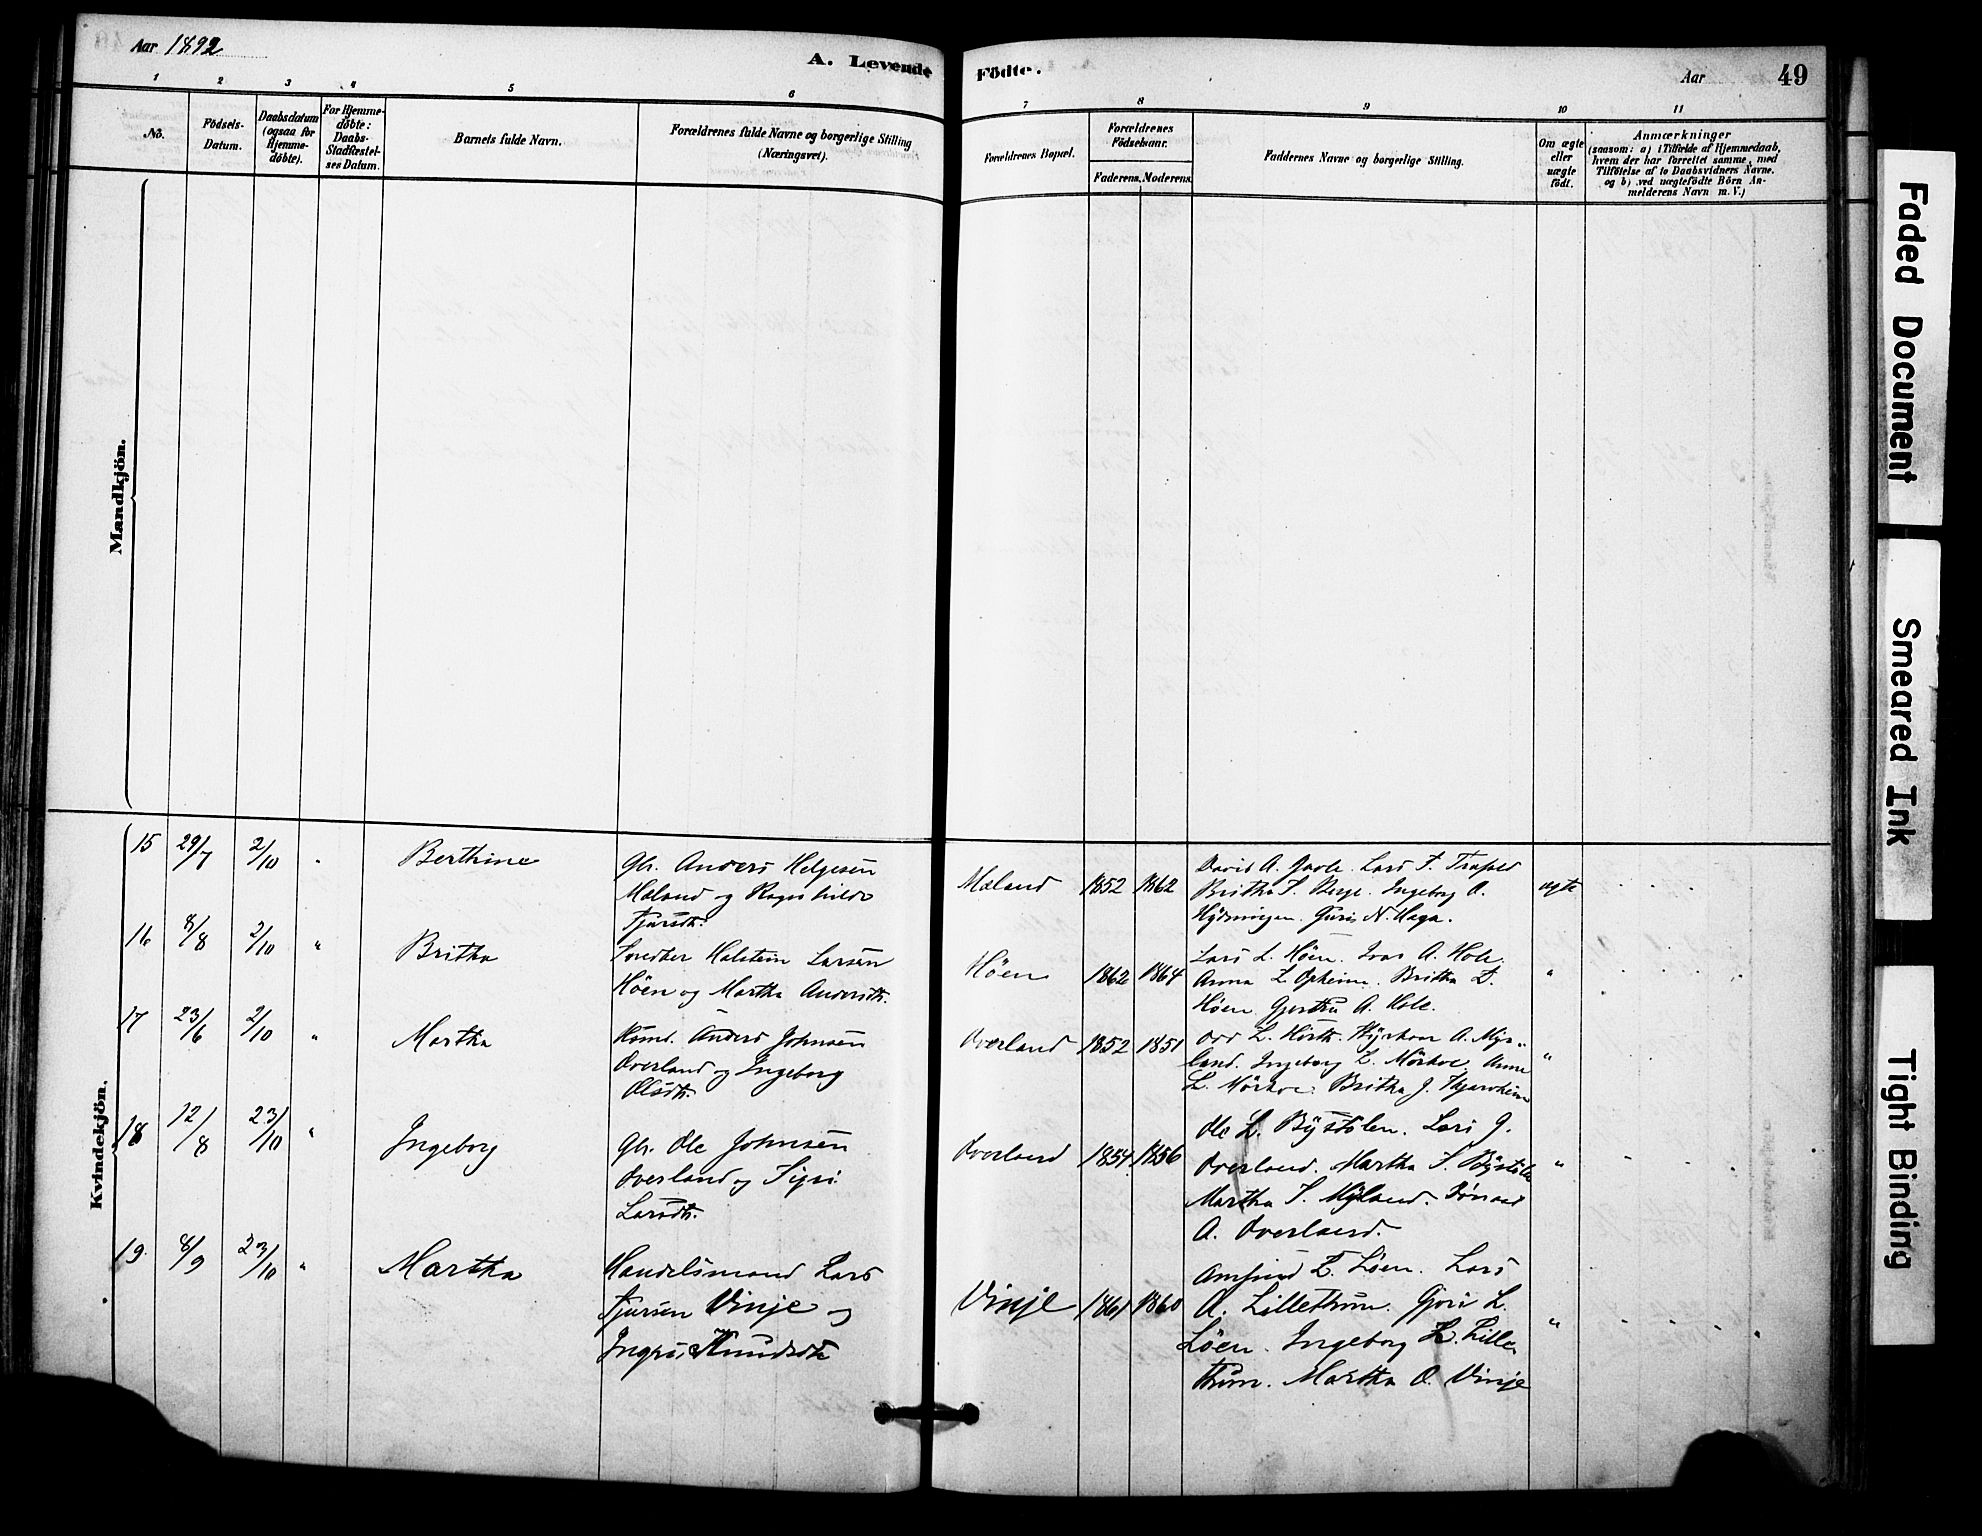 Aar 1892
A. Levende Födte.
Aar
49
1 2 3 4 5 6 7 8 9 10 11
No.
Födsels-
Datum.
Daabsdatum
(ogsaa for
Hjemme-
döbte).
For Hjemme-
döbte:
Daabs-
Stadfæstel-
ses Datum.
Barnets fulde Navn.
Forældrenes fulde Navne og borgerlige Stilling
(Næringsvei).
Forældrenes Bopæl.
Forældrenes
Födselsaar.
Faderens. Moderens.
Faddernes Navne og borgerlige Stilling.
Om ægte
eller
uægte
födt.
Anmærkninger
(saasom: a) i Tilfælde af Hjemmedaab,
hvem der har forrettet samme, med
Tilföielse af to Daabsvidners Navne,
og b) ved uægtefödte Börn An-
melderens Navn m. V.)
Mandkjön.
Kvindekjön.
15 29/7 2/10 Berthine
Gbr. Anders Helgesen
Mæland og Ragnhilde
Tjursdtr.
Mæland 1852 1862
David A. Lars T.
Britha S. Berge. Ingeborg O.
Guri N. Haga.
ægte
16 8/8 2/10 " Britha
Holstein Larsen
Höen og Martha Andersdtr.
Höen 1862 1864
Lars L. Höen. Ivar A. Hole.
Anna L. Opheim. Britha L.
Höen. Gjertru A. Hole.
"
17 23/6 2/10 " Martha
Anders Johnsen
Överland og Ingeborg
Olsdtr.
Överland 1852 1851
Odd L. A. Myr-
land. Ingeborg L. Mörkve. Anna
L. Mörkve. Britha J.
"
18 12/8 23/10 " Ingeborg
Gbr. Ole Johnsen
Överland og Sigri
Larsdtr.
Överland 1854 1856
Ole L. Bystölen. Lars J.
Överland. Martha S. Bystöle
Martha S. Myland.
A. Överland.
"
19. 8/9 23/10 " Martha
Handelsmand Lars
Tjursen Vinje og
Ingri Knudsdtr
Vinje 1861 1860
Amfind L. Löen. Lars
A. Lillethun. Guri L.
Löen. Ingeborg L. Lille-
thun. Martha O. Vinje
"
Faded Document
Smeared Ink
Tight Binding